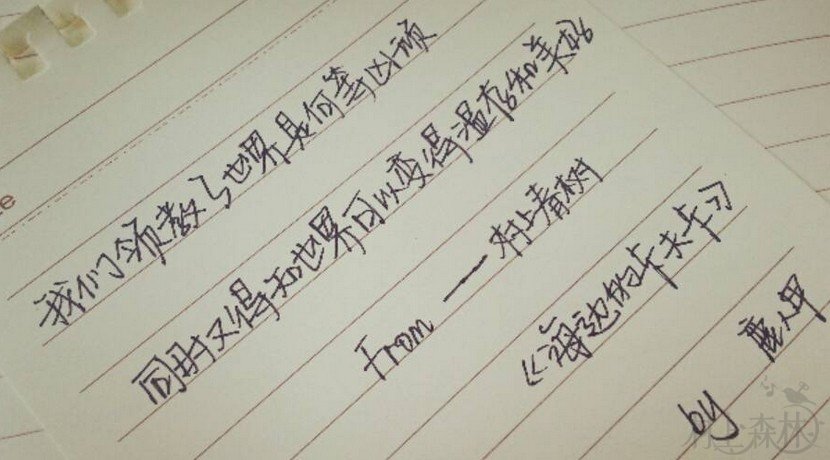 我们领教了世界是何等凶顽
同时又得知世界可以变得温存和美好
From — 村上春树
《海边的卡夫卡》
by 鹿人甲
村上森林